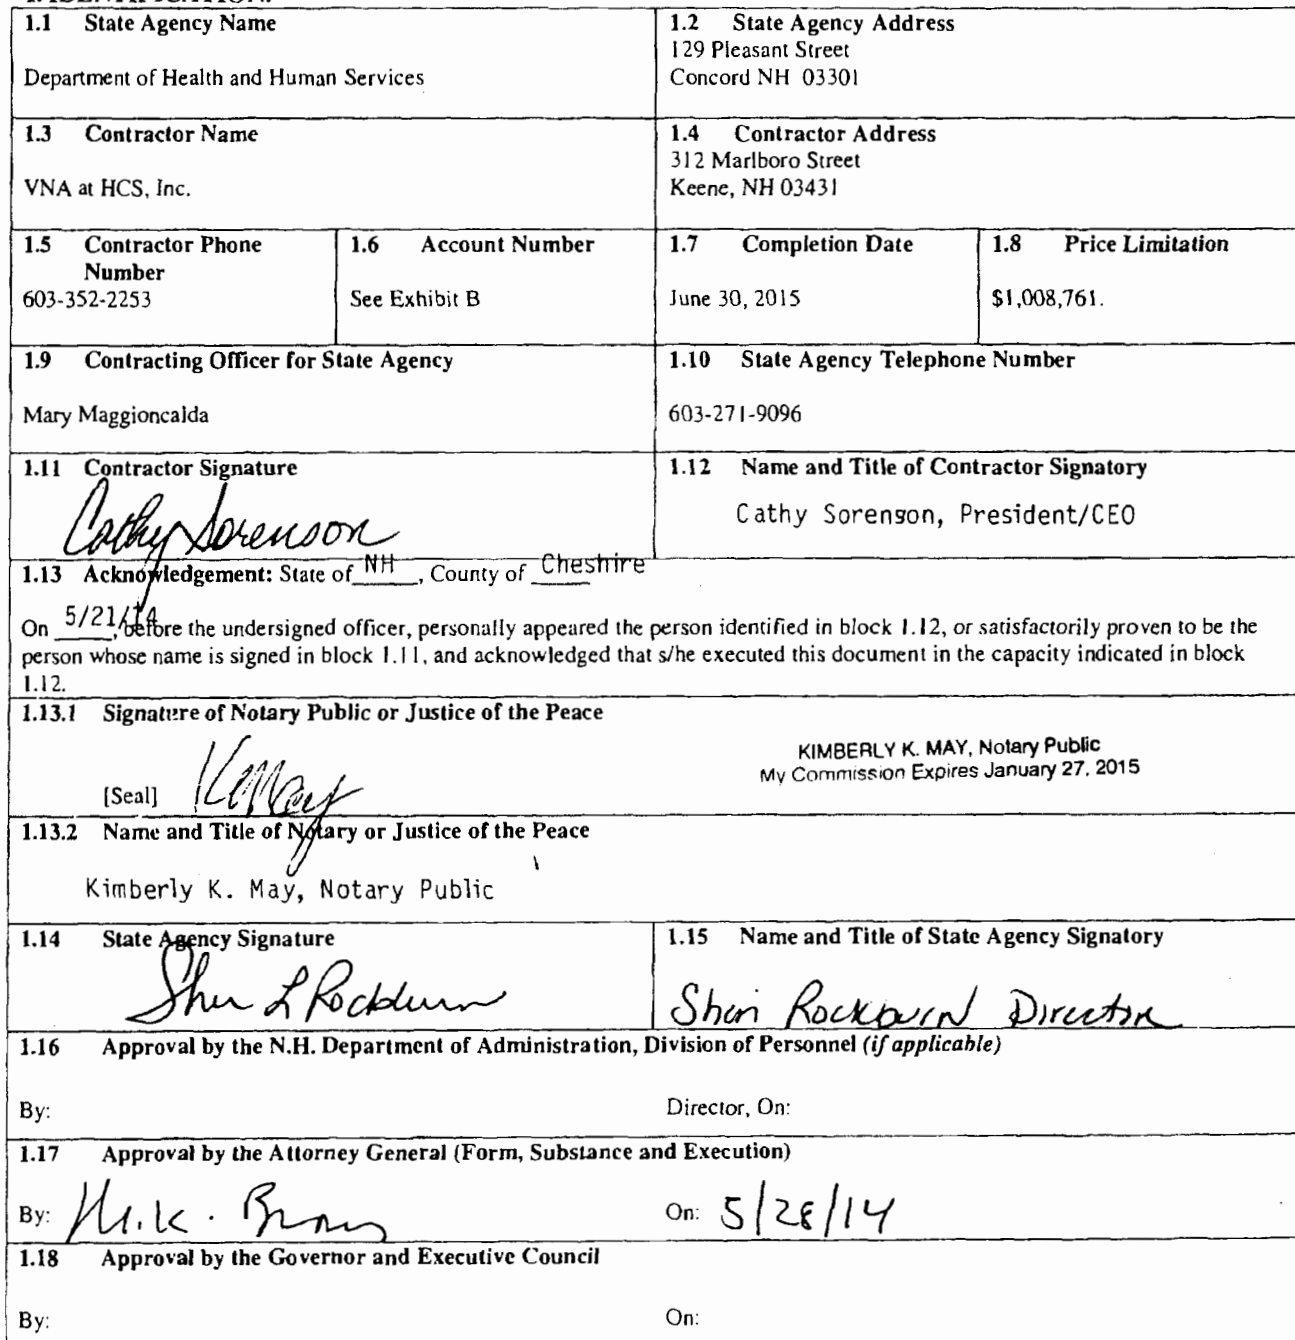 1.1 State Agency Name
Department of Health and Human Services
1.2 State Agency Address
129 Pleasant Street
Concord NH 03301
1.3 Contractor Name
VNA at HCS, Inc.
1.4 Contractor Address
312 Marlboro Street
Keene, NH 03431
1.5 Contractor Phone
Number
603-352-2253
1.6 Account Number
See Exhibit B
1.7 Completion Date
June 30, 2015
1.8 Price Limitation
$1,008,761.
1.9 Contracting Officer for State Agency
Mary Maggioncalda
1.10 State Agency Telephone Number
603-271-9096
1.11 Contractor Signature
Cathy Sorenson
1.12 Name and Title of Contractor Signatory
Cathy Sorenson, President/CEO
1.13 Acknowledgement: State of NH, County of Cheshire
On 5/21/14, before the undersigned officer, personally appeared the person identified in block 1.12, or satisfactorily proven to be the
person whose name is signed in block 1.11, and acknowledged that s/he executed this document in the capacity indicated in block
1.12.
1.13.1 Signature of Notary Public or Justice of the Peace
KIMBERLY K. MAY, Notary Public
My Commission Expires January 27, 2015
[Seal] K May
1.13.2 Name and Title of Notary or Justice of the Peace
Kimberly K. May, Notary Public
1.14 State Agency Signature
Sheri L Rockburn
1.15 Name and Title of State Agency Signatory
Sheri Rockburn Director
1.16 Approval by the N.H. Department of Administration, Division of Personnel (if applicable)
By:
Director, On:
1.17 Approval by the Attorney General (Form, Substance and Execution)
By: M.K. Brown
On: 5/28/14
1.18 Approval by the Governor and Executive Council
By:
On: